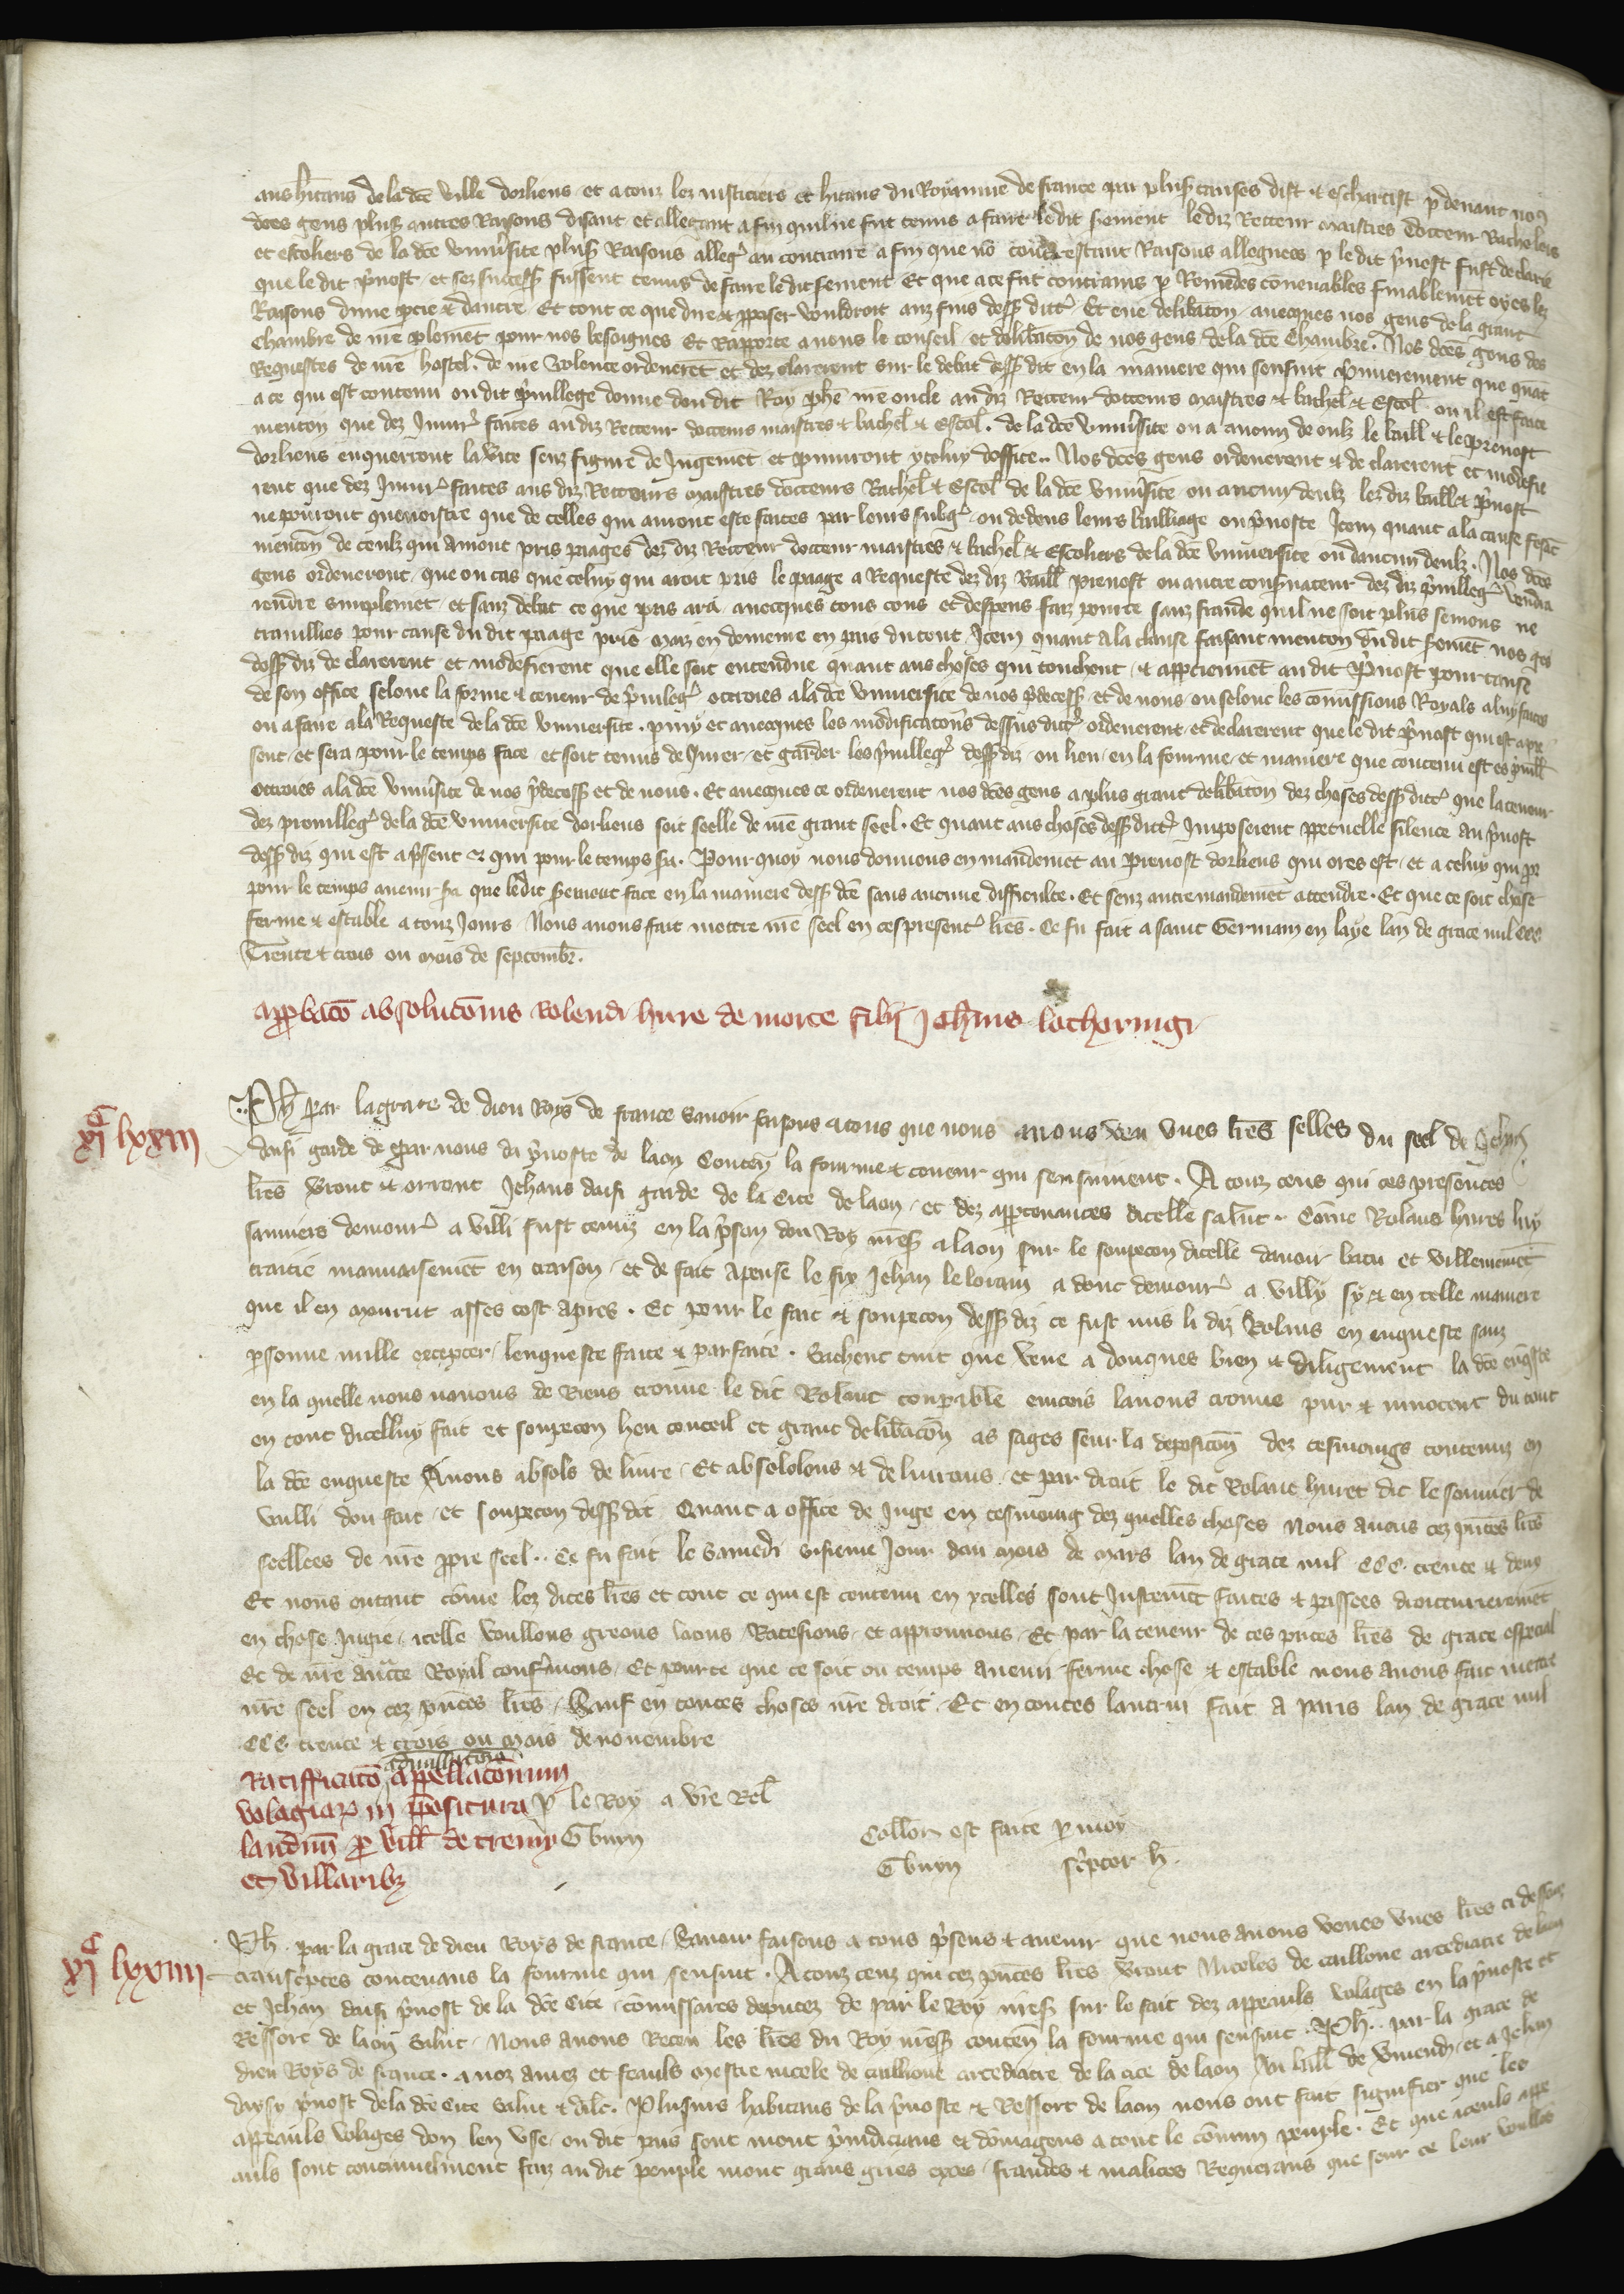 aus hitans de la dce ville dorliens et a touz les justiciers et hitans du Royaume de france qui plus causes dist et eschartist p devant nos
dces gens plus autres Raisons disant et allegant a fin quil ne fut tenus a faire le dit serment le diz Recteur maistres Docteur Bacheliers
et escoliers de la dce universite plus Raisons alleg au contraire a fin que no contrestant Raisons alleguees p le dit pvost fust declarie
que le dit pvost et ses success fussent tenus de faire le dit serment Et que a ce fut contrains p Remedes convenables finablemet oyes les
Raisons dune ptie et dautre Et tout ce que dire et pposer vouldroit aux fins dess ditt Et eue delibacon avecques nos gens de la grant
chambre de nre plemet pour nos besoignes Et Rapporte a nous le conseil et delibacon de nos gens de la dce Chambre . Nos dces gens des
Requestes de nre hostel . de nre volente ordenerent et dez clarerent sur le debat dess dit en la maniere qui sensuit pmierement que quat
a ce qui est contenu ou dit pvillege donne dou dit Roy phe nre oncle au diz Recteur docteurs maistres et bachel et Escol . ou il est faite
mencon que dez Injur faites au diz Recteur docteurs maistres et bachel et Escol . de la dce universite ou a aucun de eulz le baill et le prevost
dorliens enquerront la vite senz figure de Jugemet et puniront yceluy doffice .. Nos dces gens ordenerent et de clarerent et modefie
rent que dez Injur faites aus diz Recteurs maistres docteurs Bachel et Escol de la dce universite ou aucun deulz lez diz baill et pvost
ne pourront quenoistre que de celles qui auront este faites par leurs subg ou dedens leurs bailliage ou pvoste Item quant a la cause fesat
mencon de ceulz qui auront pris paages dez diz Recteur docteur maistres et bachel et Escoliers de la dce universite ou daucun deulz . Nos dces
gens ordenerent que ou cas que celuy qui aroit pris le paage a Requeste dez diz Baill prevost ou autre conservateur dez diz pvilleg vendra
rendre simplemet et sanz debat ce que pris ara avecques tous cous et despens faiz pource sanz fraude quil ne soit plus semons ne
travillies pour cause du dit paage pris maiz en demeure en pais du tout Item quant a la clause faisant mencon du dit semet nos ges
dess diz de clarerent et modefierent que elle soit entendue quant aus choses qui touchent et apptiennet au dit Pvost pour cause
de son office selonc la forme et teneur de pvileg ottroies a la dce universite de nos pdecess et de nous ou selonc les comissions Royals a luy faites
ou a faire a la Requeste de la dce universite . pmy et avecques les modificatons dessus ditt ordenerent et declarerent que le dit pvost qui est a pre
sent et sera pour le temps face et soit tenus de Jurer et garder les pvilleg dess diz ou lieu en la fourme et maniere que contenu est es pvill
ottroies a la dce univsite de nos pdecess et de nous . Et avecques ce ordenerent nos dces gens a plus grant delibacon dez choses dess ditt que la teneur
dez previlleg de la dce universite dorliens soit seelle de nre grant seel . Et quant aus choses dess ditt Imposerent ppetuelle silence au pvost
dess diz qui est a psent et qui pour le temps sa . Pour quoy nous donnons en mandemet au Prevost dorliens qui ores est et a celuy qui pr
pour le temps avenir sa que le dit serment face en la maniere dess dce sans aucune difficulte . Et senz autre mandemet attendre . Et que ce soit chose
ferme et estable a touz Jours Nous avons fait mettre nre seel en ces present lres . Ce fu fait a saint Germain en laye lan de grace mil ccc
Trente et trois ou mois de septembr .
appbaco absolucionis Rolendi hure de morte filii Johis lothoringi
xi c lxxiii
Ph par la grace de dieu Roys de france Savoir faisons a tous que nous avons veu unes lres selles du seel de Jeh
daisi garde de par nous da pvoste de laon Conten la fourme et teneur qui sensuivent . A touz ceus qui ces presentes
lres verront et orront Jehans daisi garde de la Cite de laon et dez apptenances dicelle salut . Come Rolans hures luy
sauniers demour a villi fust tenuz en la pson dou Roy nres a laon sur le soupecon dicelle davoir batu et villenemet
traitie mauvaisemet en traison et de fait apense le fix Jehan le lorain a donc demour a villy sy et en telle maniere
que il en mourut asses tost apres . Et pour le fait et soupecon dess diz ce fust mis li diz Rolans en enqueste sanz
psonne nulle excepter lenqueste faite et parfaite . Sachent tuit que veue a donques bien et diligement la dce enqste
en la quelle nous navons de Riens trouve le dit Rolant coupable eincois lavons trouve pur et innocent du tout
en tout dicelluy fait et soupecon heu conceil et grant delibacon as sages seur la deposicon dez tesmoings contenuz en
la dce enqueste Avons absols de livre . Et absololons et de livrons et par droit le dit Rolant huret dit le sonnier de
vuilli dou fait et soupecon dess dit Quant a office de Juge en tesmoing dez quelles choses Nous avons cez pntes lres
seellees de nre ppre seel .. Ce fu fait le Samedi sisieme Jour dou mois de Mars lan de grace mil CCC . trente et deux
Et nous entant come lez dites lres et tout ce qui est contenu en ycelles sont Justemet faites et passees droiturieremet
en chose Jugie icelle voullons greons loons Ratefions et approuvons . Et par la teneur de ces pntes lres de grace especial
Et de nre aucte Royal confmons . Et pource que ce soit ou temps avenir ferme chose et estable nous avons fait mettre
nre seel en cez pntes lres . Sauf en toutes choses nre droit . Et en toutes lautrui fait a Paris lan de grace mil
CCC trente et trois ou mois de novembre
Ratifficaco appellaconum
volagiar in ppositura p le Roy a vre Rel
laudun p vill de tremy G buyn
et villaribz
Collon est faite p moy
G buyn scptor h .
xi c lxxiiii
Ph . par la grace de dieu Roys de france . Savoir faisons a tous psens et avenir que nous avons veues unes lres ci dessouz
transcptes contenans la fourme qui sensuit . A touz ceuz qui cez pntes lres verront Nicoles de caillone arcediacre de laon
et Jehan daisi pvost de la dce Cite comissares deputez de par le Roy nres sur le fait dez appeauls volages en la pvoste et
Ressort de laon Salut . Nous avons Receu les lres du Roy nres conten la fourme qui sensuit . Ph .. par la grace de
dieu Roys de france . a noz amez et feauls mestre nicole de caillioue arcediacre de la cite de laon Au baill de vmend et a Jehan
daysy pvost de la dce Cite Salut et dilc . Plusieurs habitans de la pvoste et Ressort de laon nous ont fait signifier que les
appeauls volages don len use ou dit pais sont mout pjudicians et domageus a tout le comun peuple . Et que iceuls appe
auls sont continuelment faiz au dit peuple mout grans gries exces fraudes et malices Requerans que seur ce leur voullons